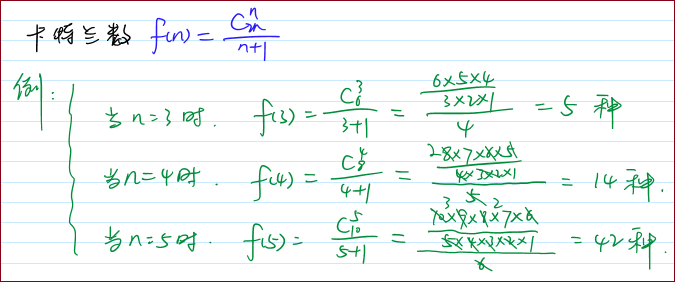 卡特兰数 f(n) = C₂ₙⁿ / (n+1)
例:
当 n=3 时. f(3) = C₆³ / (3+1) = (6×5×4 / 3×2×1) / 4 = 5 种
当 n=4 时. f(4) = C₈⁴ / (4+1) = (8×7×6×5 / 4×3×2×1) / 5 = 14 种.
当 n=5 时. f(5) = C₁₀⁵ / (5+1) = (10×9×8×7×6 / 5×4×3×2×1) / 6 = 42 种.